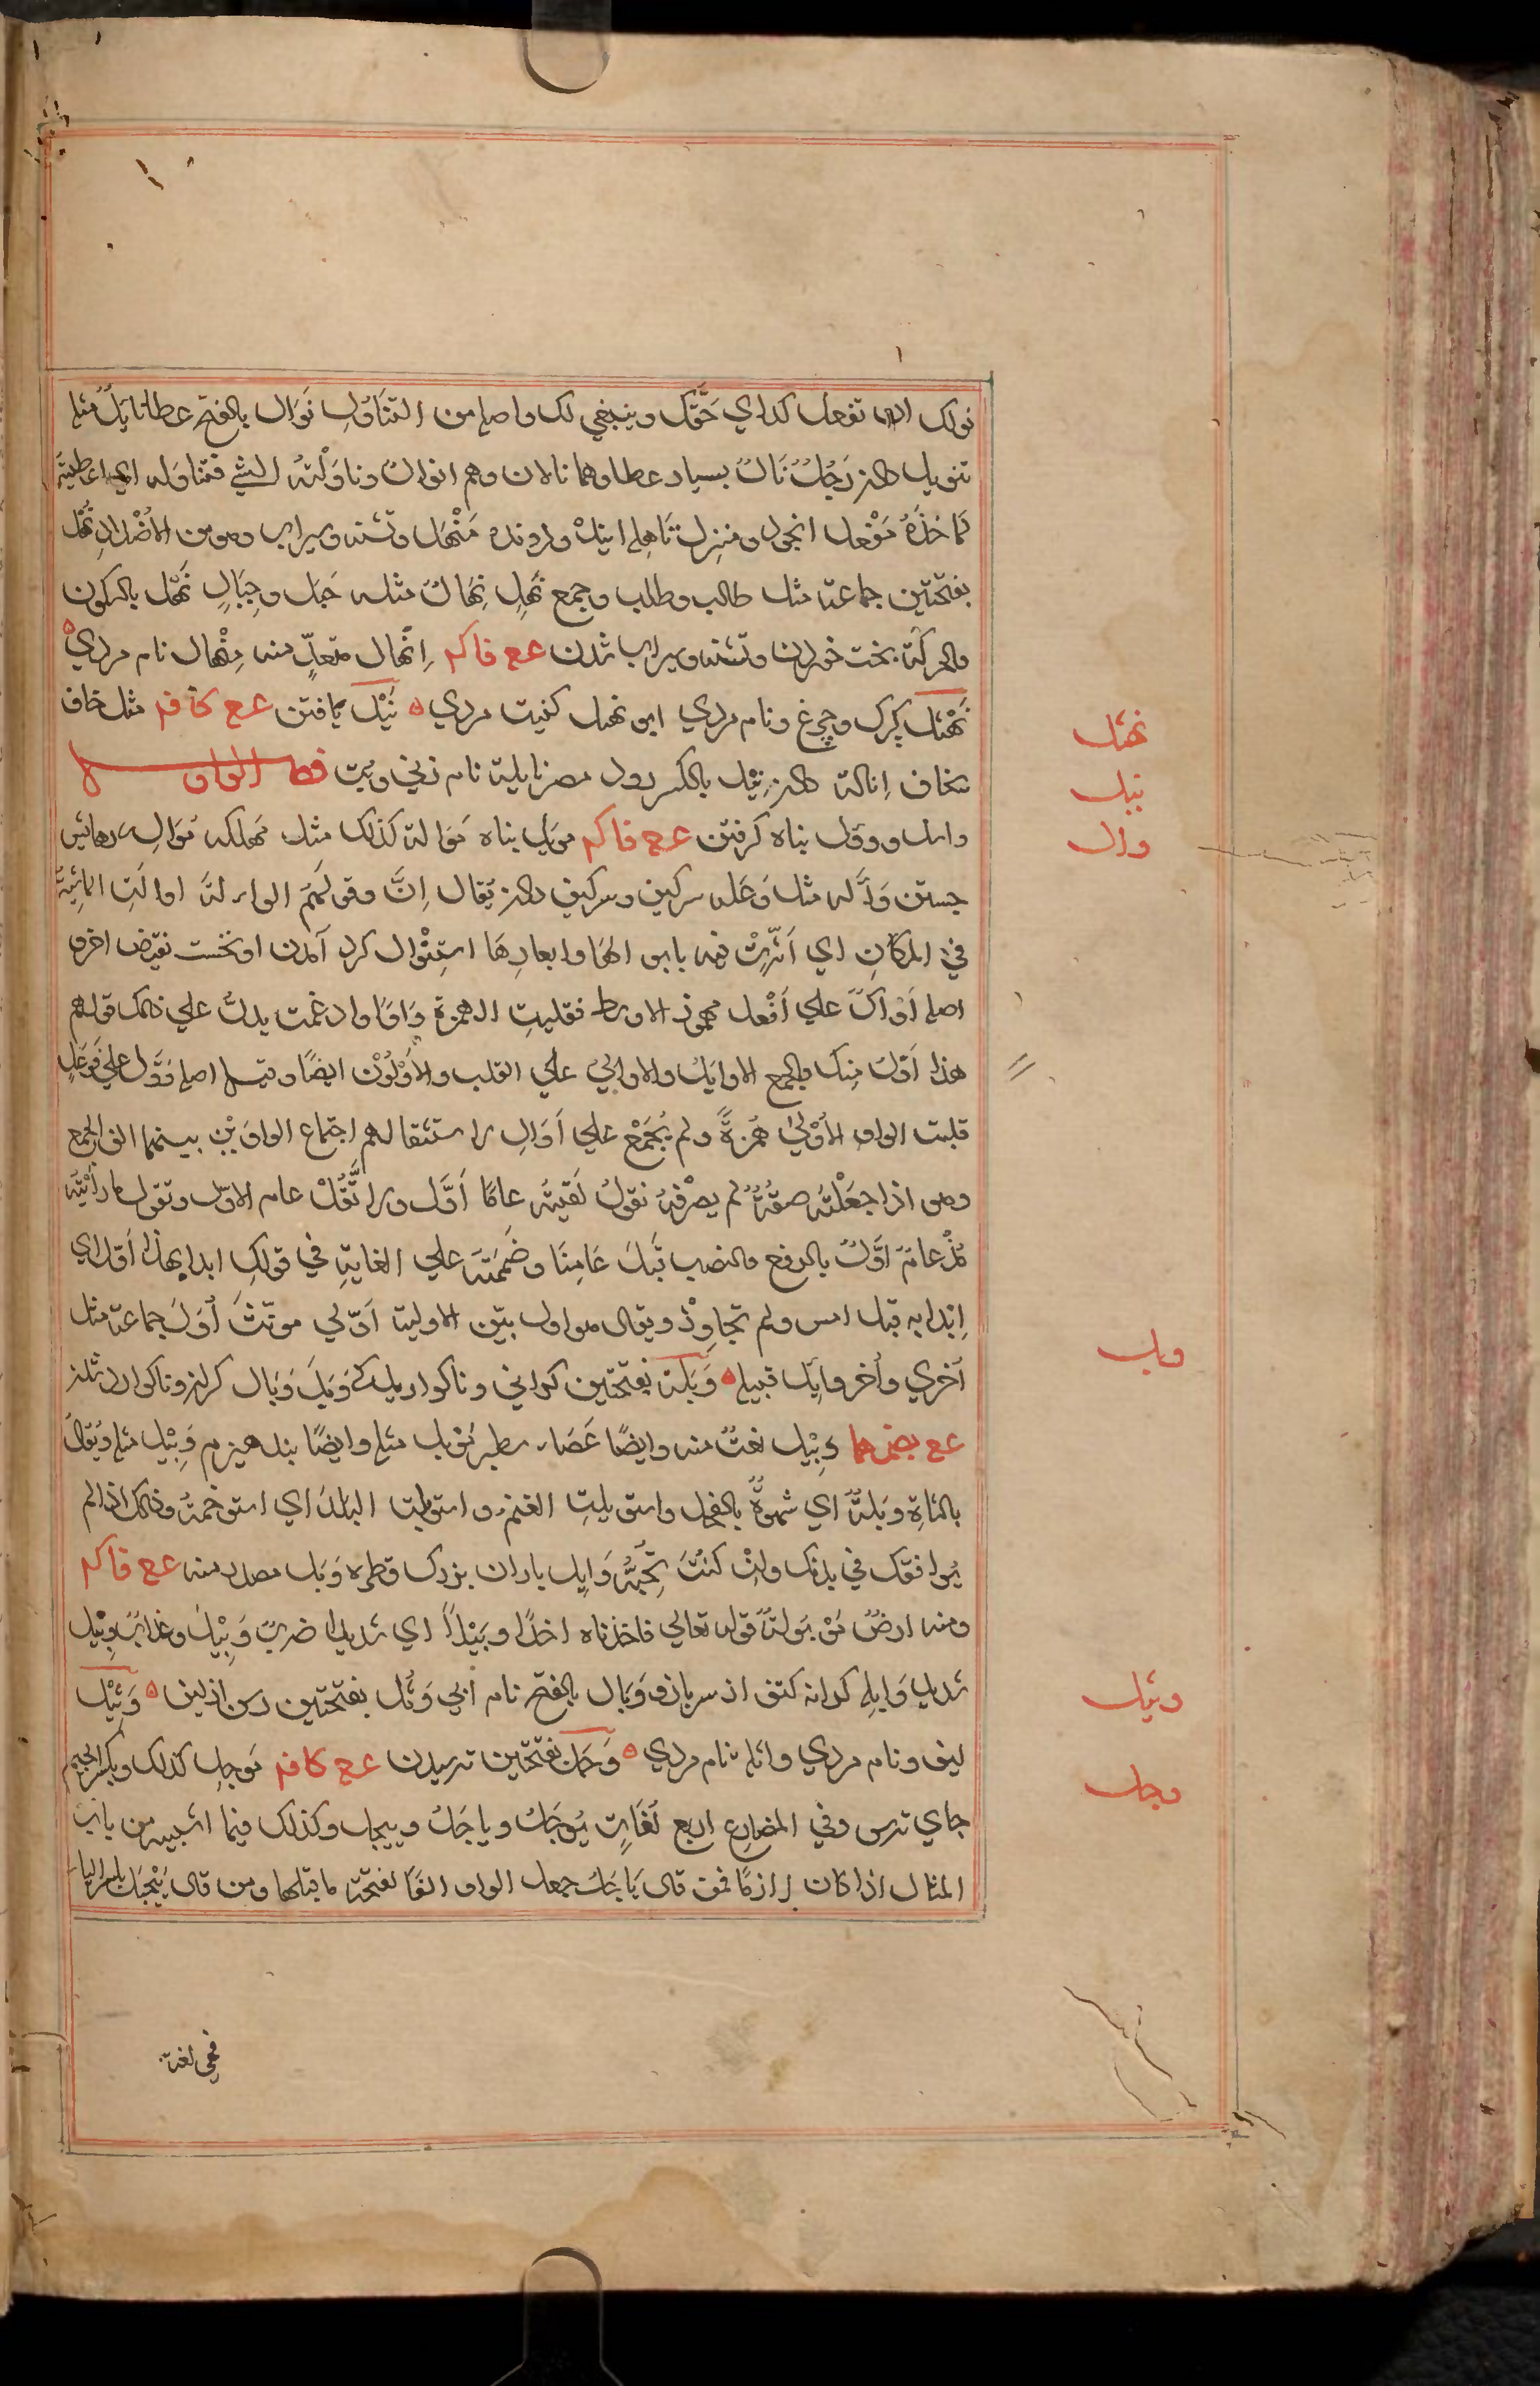 نولك ان تفعل كذا اي حَقُّك وينبغي لك واصله من التناوُلِ نَوَال بالفتح عطا نايلٌ مثله
تنويل دادن رَجُلٌ نَالٌ بسيار عطا وهما نالان وهم انوالٌ وناوَلْتُه الشئ فتناوَله اي اعطيتَه
فاخذَهُ مَنْهل ابخور ومنزل ناهله اينك و رونده مَنْهَل وتشنه وسيراب وهو من الأضداد نَهَل
بفتحتين جماعة مثل طالب وطلب وجمع نَهَلِ نِهَالٌ مثل جَبَل وجِبَالٍ نَهل بالسكون
والحركة نخست خوردن وتشنه وسيراب شدن عع فاكم اِنْهال متعدٍّ منه مِنْهال نام مردي
نَهْشَل گرگ وچرغ ونام مردي ابو نهشل كنيت مردي نَيْل يافتن عع كافم مثل خاف
يخاف اِنالة دادن نِيْل بالكسر رود مصر نايلة نام زني وبت فصل الواو
وأل و وؤل پناه گرفتن عع فاكم موئل پناه مَوألة كذلك مثل مهلكه مُوَالِ رهائش
جستن وَأْلَه مثل وَعْله سرگين وسرگين دان يُقال اِنَّ وقولَهم الوالة اوالَتِ الماشيةُ
في المكانِ اي اَثَّرتْ فيه بابوالها وابعارِها استِيْوال گرد آمدن اول نخست نقيض اخر و
اصله أَوْأَل علي اَفْعل مهموز الاوسط فقلبت الهمزة وَاوًا وادغمت يدلُّ علي ذلك قولهم
هذا اَوَّلُ مِنك والجمع الاوايلُ والاوالي علي القلب والأوّلُوْن ايضًا وقيل اصله وَوَّل علي فَوعَلٍ
قلبت الواو الأُوْلي همزةً ولم يُجْمَعْ علي اَوَاوِل لاستثقالهم اجتماع الواوَيْنِ بينهما الف الجمع
وهو اذا جعَلْتَه صفةً لم يصْرِفْه نقولُ لَقيتُه عامًا اَوَّلَ ولا تَقُلْ عام الاوّل وتقول ما رأيْتُه
مُذْعامٌ اَوَّلُ بالرفع والنصب قَبلَ عَامِنَا وضَمَمْتَه علي الغايةِ في قولك ابدا بهذا اَوَّل اي
اِبْدا به قبل امس ولم تجاوِزْ ويقال هو اول بين الاولية اَوْلي مونّث أُوَل جماعة مثل
اُخري وأُخر وايل قبيله وَبَلة بفتحتين گراني وناگواريدگي وَبَلَ وَبَال گران وناگوار شدن
عع بضمهما وَبِيْل نعتٌ منه وايضًا عَصَا سطبر مَوبِل مثله وايضًا بند هيزم وَبِيْل مثله ويُقال
بالشاةِ وبَلةٌ اي شهوةٌ بالفحل واستوبلتِ الغنم واستوبلت البلدَ اي استوخمتُه وذلك اذا لم
يُوافقك في بدنك وانْ كنتَ تُحِبُّه وَابِل باران بزرگ قطره وَبل مصدر منه عع فاكم
ومنه ارضٌ مَوْبُولةٌ قوله تعالي فاخذناه اخذًا وَبَيْلاً اي شديدًا ضربٌ وَبِيْلٌ وعذابٌ وبِيْل
شديد وَابِله كرانه كتف از سر بازو وَبَال بالفتح نام ابي وَثَل بفتحتين رسن از ليف وَثِيْل
ليف ونام مردي واثله نام مردي وَجَل بفتحتين ترسيدن عع كافم مَوجَل كذلك وبكسر الجيم
جاي ترس وفي المضارع اربع لُغَاتٍ يَوجَلُ وياجَلُ وييجل وكذلك فيما اشبهه من باب
المثال اذا كان لازمًا فمن قال يَاجَلُ جعل الواو الفًا لفتحة ما قبلها ومن قال يِيْجَل بكسر اليا
فهي لغة
نهشل
نيل
وأل
وبل
وثيل
وجل